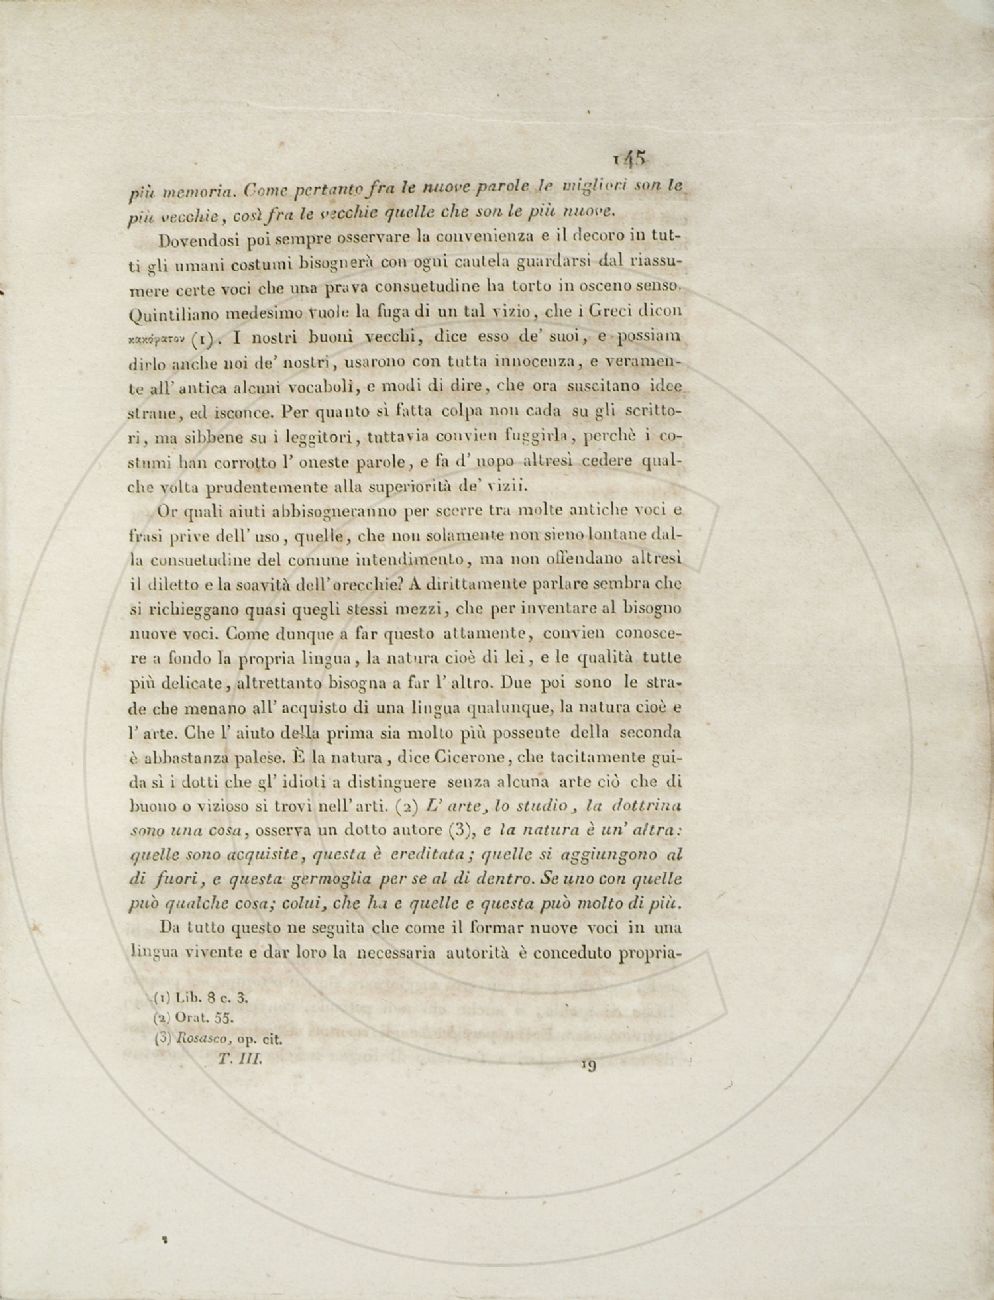 145
più memoria. Come pertanto fra le nuove parole le migliori son le
più vecchie, così fra le vecchie quelle che son le più nuove.
Dovendosi poi sempre osservare la convenienza e il decoro in tut-
ti gli umani costumi bisognerà con ogni cautela guardarsi dal riassu-
mere certe voci che una prava consuetudine ha torto in osceno senso.
Quintiliano medesimo vuole la fuga di un tal vizio, che i Greci dicon
κακόφατον (1). I nostri buoni vecchi, dice esso de' suoi, e possiam
dirlo anche noi de' nostri, usarono con tutta innocenza, e veramen-
te all' antica alcuni vocaboli, e modi di dire, che ora suscitano idee
strane, ed isconce. Per quanto sì fatta colpa non cada su gli scritto-
ri, ma sibbene su i leggitori, tuttavia convien fuggirla, perchè i co-
stumi han corrotto l' oneste parole, e fa d' uopo altresì cedere qual-
che volta prudentemente alla superiorità de' vizii.
Or quali aiuti abbisogneranno per scerre tra molte antiche voci e
frasi prive dell' uso, quelle, che non solamente non sieno lontane dal-
la consuetudine del comune intendimento, ma non offendano altresì
il diletto e la soavità dell' orecchie? A dirittamente parlare sembra che
si richieggano quasi quegli stessi mezzi, che per inventare al bisogno
nuove voci. Come dunque a far questo attamente, convien conosce-
re a fondo la propria lingua, la natura cioè di lei, e le qualità tutte
più delicate, altrettanto bisogna a far l' altro. Due poi sono le stra-
de che menano all' acquisto di una lingua qualunque, la natura cioè e
l' arte. Che l' aiuto della prima sia molto più possente della seconda
è abbastanza palese. È la natura, dice Cicerone, che tacitamente gui-
da sì i dotti che gl' idioti a distinguere senza alcuna arte ciò che di
buono o vizioso si trovi nell' arti. (2) L' arte, lo studio, la dottrina
sono una cosa, osserva un dotto autore (3), e la natura è un' altra:
quelle sono acquisite, questa è ereditata; quelle si aggiungono al
di fuori, e questa germoglia per se al di dentro. Se uno con quelle
può qualche cosa; colui, che ha e quelle e questa può molto di più.
Da tutto questo ne seguita che come il formar nuove voci in una
lingua vivente e dar loro la necessaria autorità è conceduto propria-
(1) Lib. 8 c. 3.
(2) Orat. 55.
(3) Rosasco, op. cit.
T. III.
19